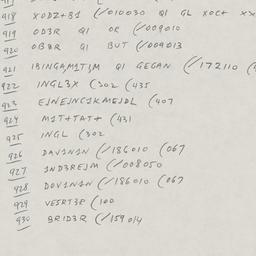 918 XODZ+B1 (/010030 QI GL XOC+ XX
919 OD3R QI OR (/009010
920 OB8R QI BUT (/009013
921 IBINGA,M1T1M QI GEGAN (/172110 (
922 INGL3X (302 (435
923 EJNEJNC1KMEJDL (407
924 M1T+TAT+ (431
925 INGL (302
926 DAV1N1N (/186010 (067
927 1ND3RE1M (/008050
928 DOV1N1N (/186010 (067
929 VE1RT3R (100
930 BRID3R (/159014